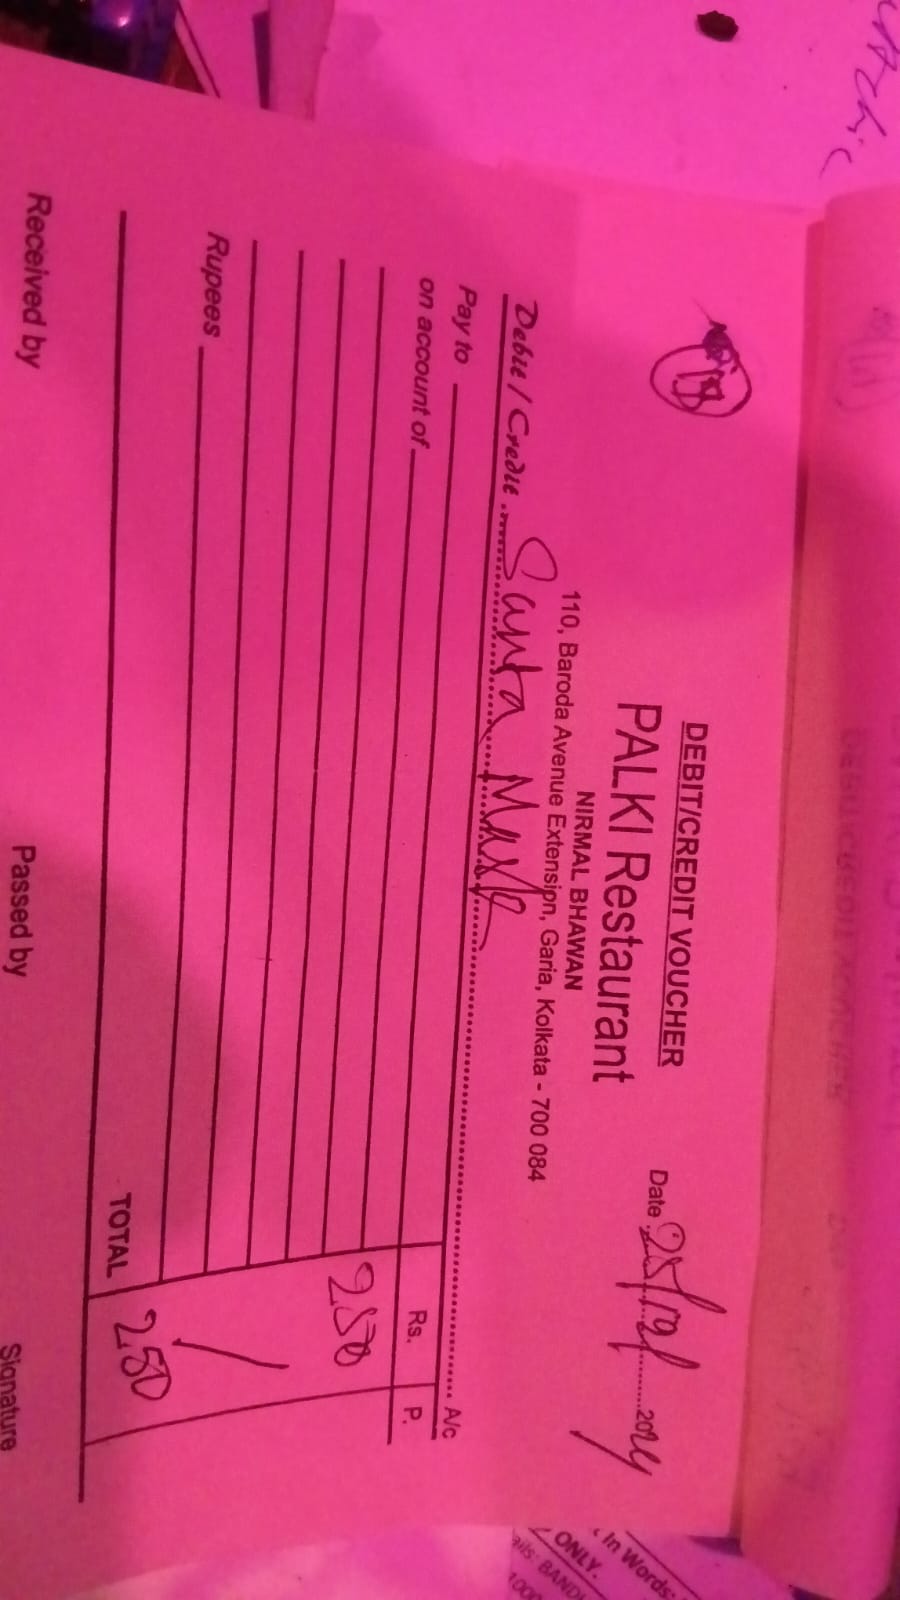 DEBIT/CREDIT VOUCHER
PALKI Restaurant
NIRMAL BHAWAN
110, Baroda Avenue Extension, Garia, Kolkata - 700 084
Date 25/12/2024
Debit / Credit Santa Mask A/c
Pay to
on account of
Rs. P.
250
Rupees
TOTAL 250
Received by Passed by Signature
In Words:
ONLY.